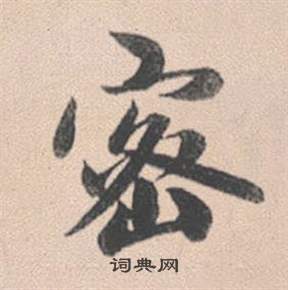 密
词典网